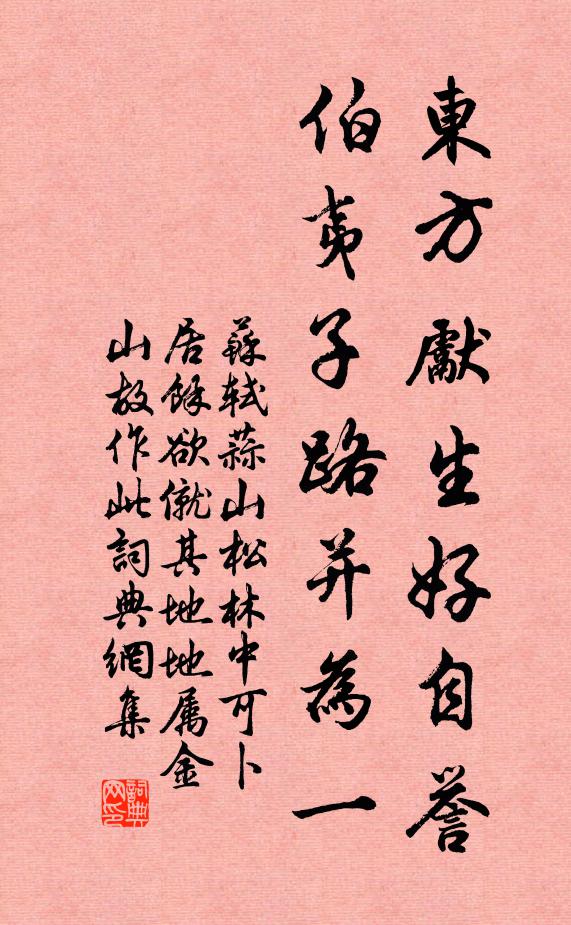 東方獻生好自譽
伯夷子路并為一
蘇軾蒜山松林中可卜
居餘欲僦其地地属金
山故作此詞典網集
詞典
网印